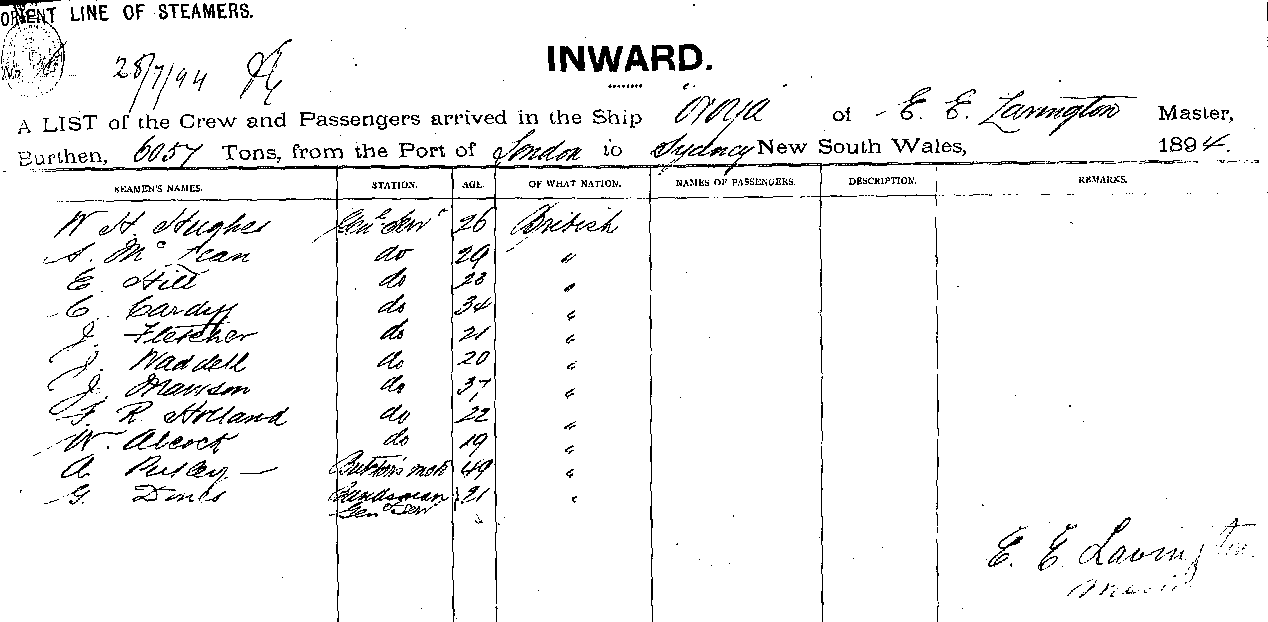 ORIENT LINE OF STEAMERS.
28/7/94
INWARD.
A LIST of the Crew and Passengers arrived in the Ship "Oroya" of E. E. Lavington Master,
Burthen, 6057 Tons, from the Port of London to Sydney New South Wales, 1894.
SEAMEN'S NAMES. STATION. AGE. OF WHAT NATION. NAMES OF PASSENGERS. DESCRIPTION. REMARKS.
W. H. Hughes Genl Serv 26 British
S. McLean do 29 "
E. Hill do 28 "
C. Cardiff do 34 "
J. Fletcher do 21 "
J. Waddell do 20 "
J. Mawson do 37 "
F. R. Holland do 22 "
W. Alcock do 19 "
A. 49 "
G. Bandsman 21 "
Genl Serv
E. E. Lavington